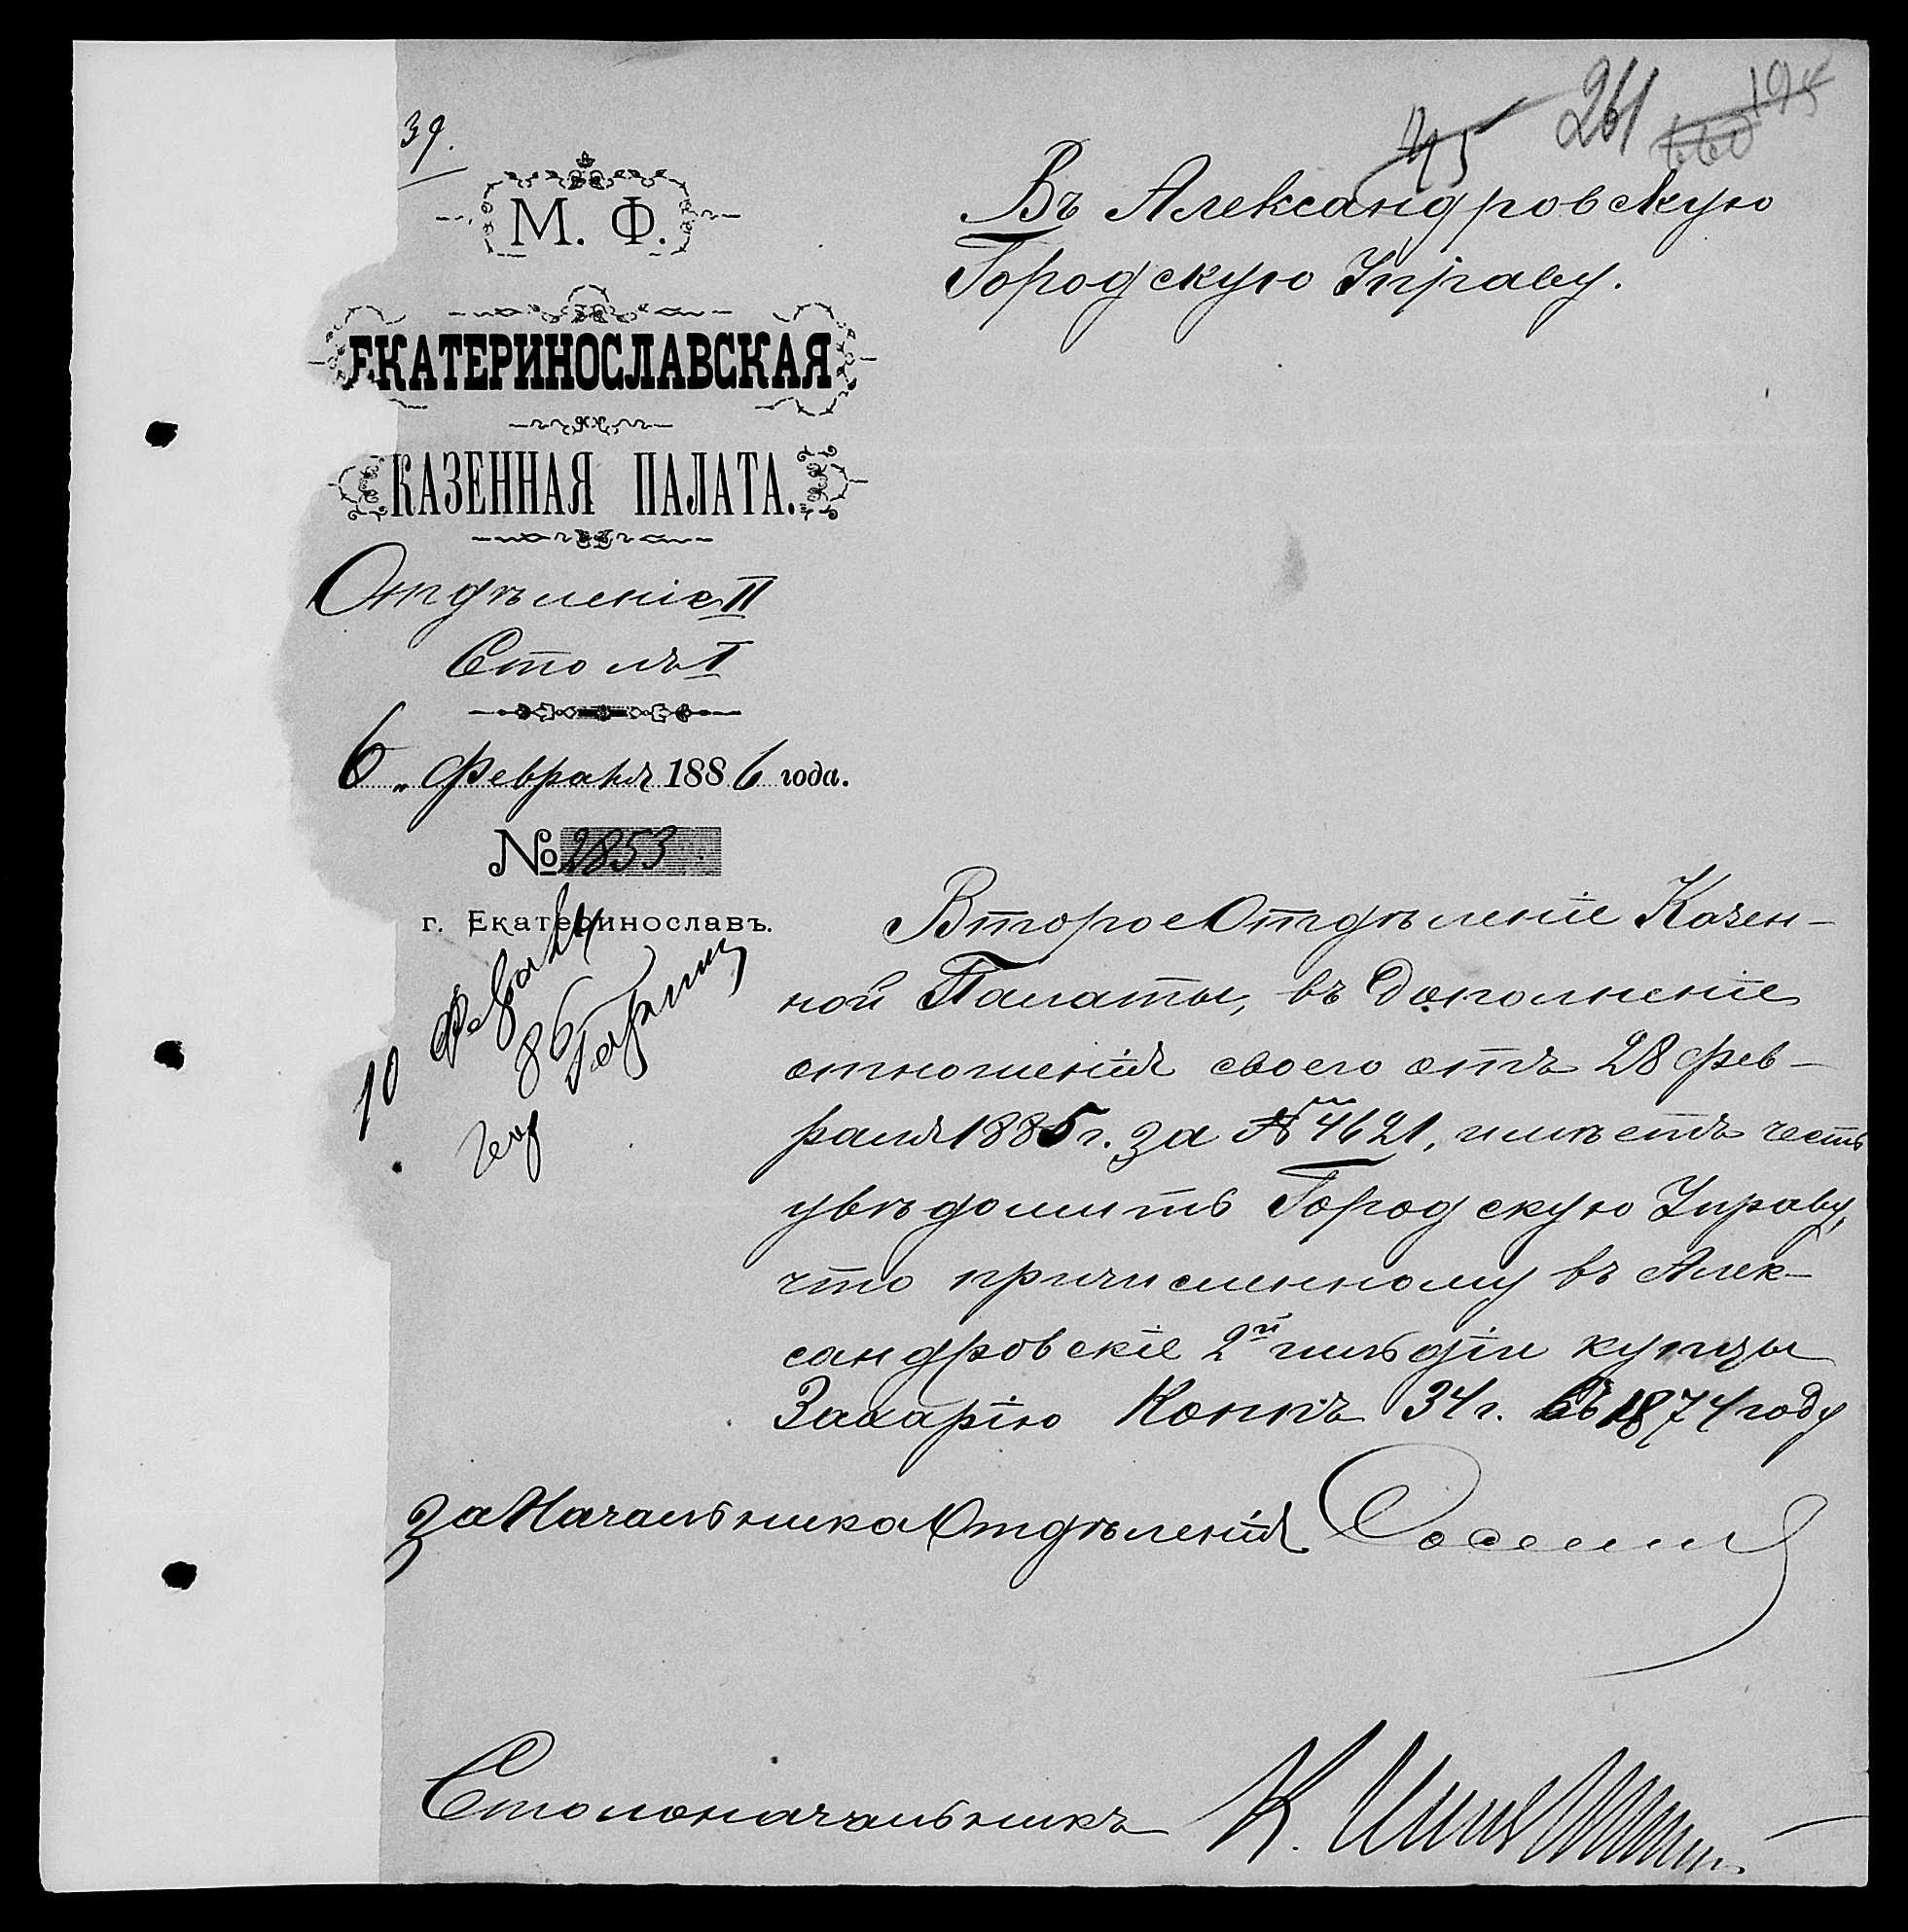 39.
45 261 195
М. Ф.
Въ Александровскую
Городскую Управу.
ЕКАТЕРИНОСЛАВСКАЯ
КАЗЕННАЯ ПАЛАТА.
Отдѣленіе II
Столъ I
6 „ февраля 1886 года.
№ 2853
г. Екатеринославъ.
10 февраля
86
Второе Отдѣленіе Казен-
ной Палаты, въ дополненіе
отношенія своего отъ 28 фев-
раля 1885 г. за № 4621, имѣетъ честь
увѣдомить Городскую Управу,
что причисленному въ Алек-
сандровскіе 2й гильдіи купцы
Захарію Коппъ 34 г. въ 1874 году
за Начальника Отдѣленія
Столоначальникъ К.